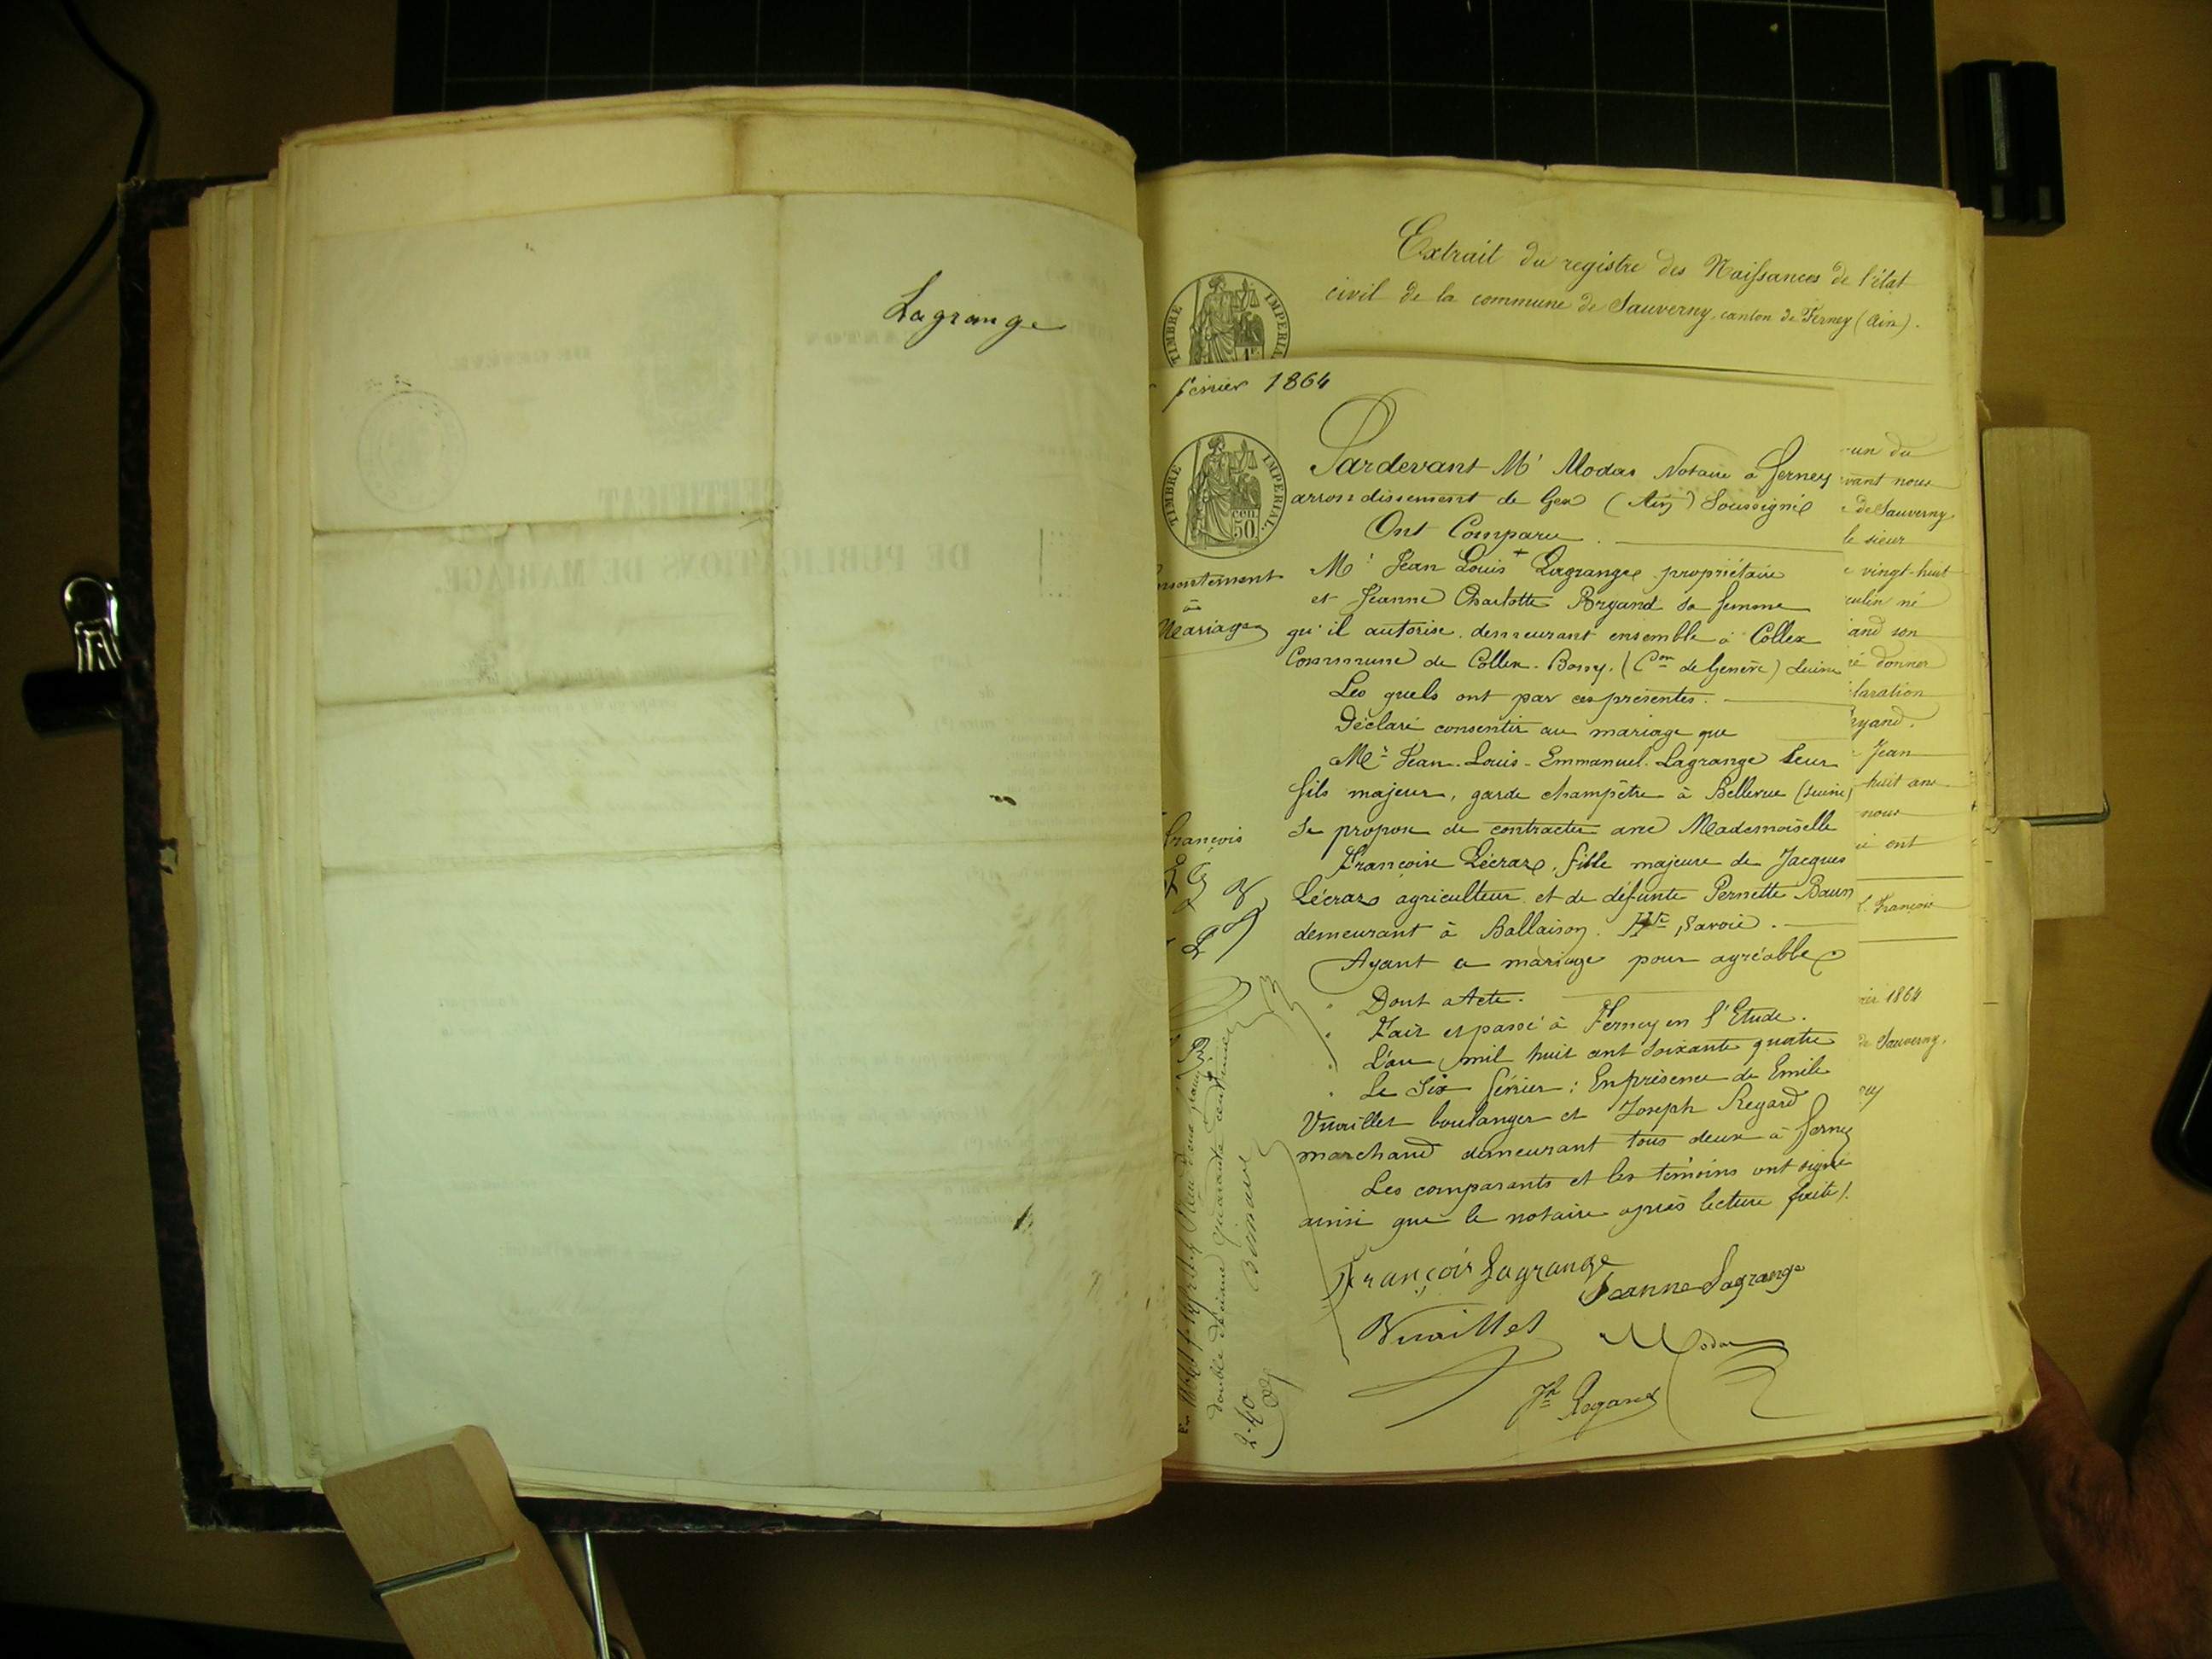 Lagrange
Extrait du registre des Naissances de l'état
civil de la commune de Sauverny, canton de Ferney (Ain).
TIMBRE IMPERIAL
février 1864
TIMBRE IMPERIAL
cen. 50
Pardevant Mr Modas Notaire à Ferney
arrondissement de Gex (Ain) Soussigné
Ont Comparu.
Mr Jean Louis + Lagrange propriétaire
et Jeanne Charlotte Bryand sa femme
qu'il autorise, demeurant ensemble à Collex
Commune de Collex-Bossy. (Con de Genève) Suisse
Les quels ont par ces présentes.
Déclaré consentir au mariage que
Mr Jean-Louis-Emmanuel Lagrange leur
fils majeur, garde champêtre à Bellevue (Suisse)
se propose de contracter avec Mademoiselle
Françoise Lécraz, fille majeure de Jacques
Lécraz agriculteur et de défunte Pernette Baun
demeurant à Ballaison. Hte Savoie.
Ayant ce mariage pour agréable
Dont acte.
Fait et passé à Ferney en l'Etude.
L'an mil huit cent soixante quatre
Le Six février : En présence de Emile
Vuaillet boulanger et Joseph Regard
marchand demeurant tous deux à Ferney
Les comparants et les témoins ont signé
ainsi que le notaire après lecture faite /.
François Lagrange
Jeanne Lagrange
Vuaillet
Modas
Jh Regard
à
Mariage
François
double décime quarante centimes
2.40
-un du
-vant nous
de Sauverny
le sieur
vingt-huit
-culin né
-and son
-ré donner
-claration
-ryand.
Jean
-huit ans
nous
-i ont
François
-rier 1864
de Sauverny.